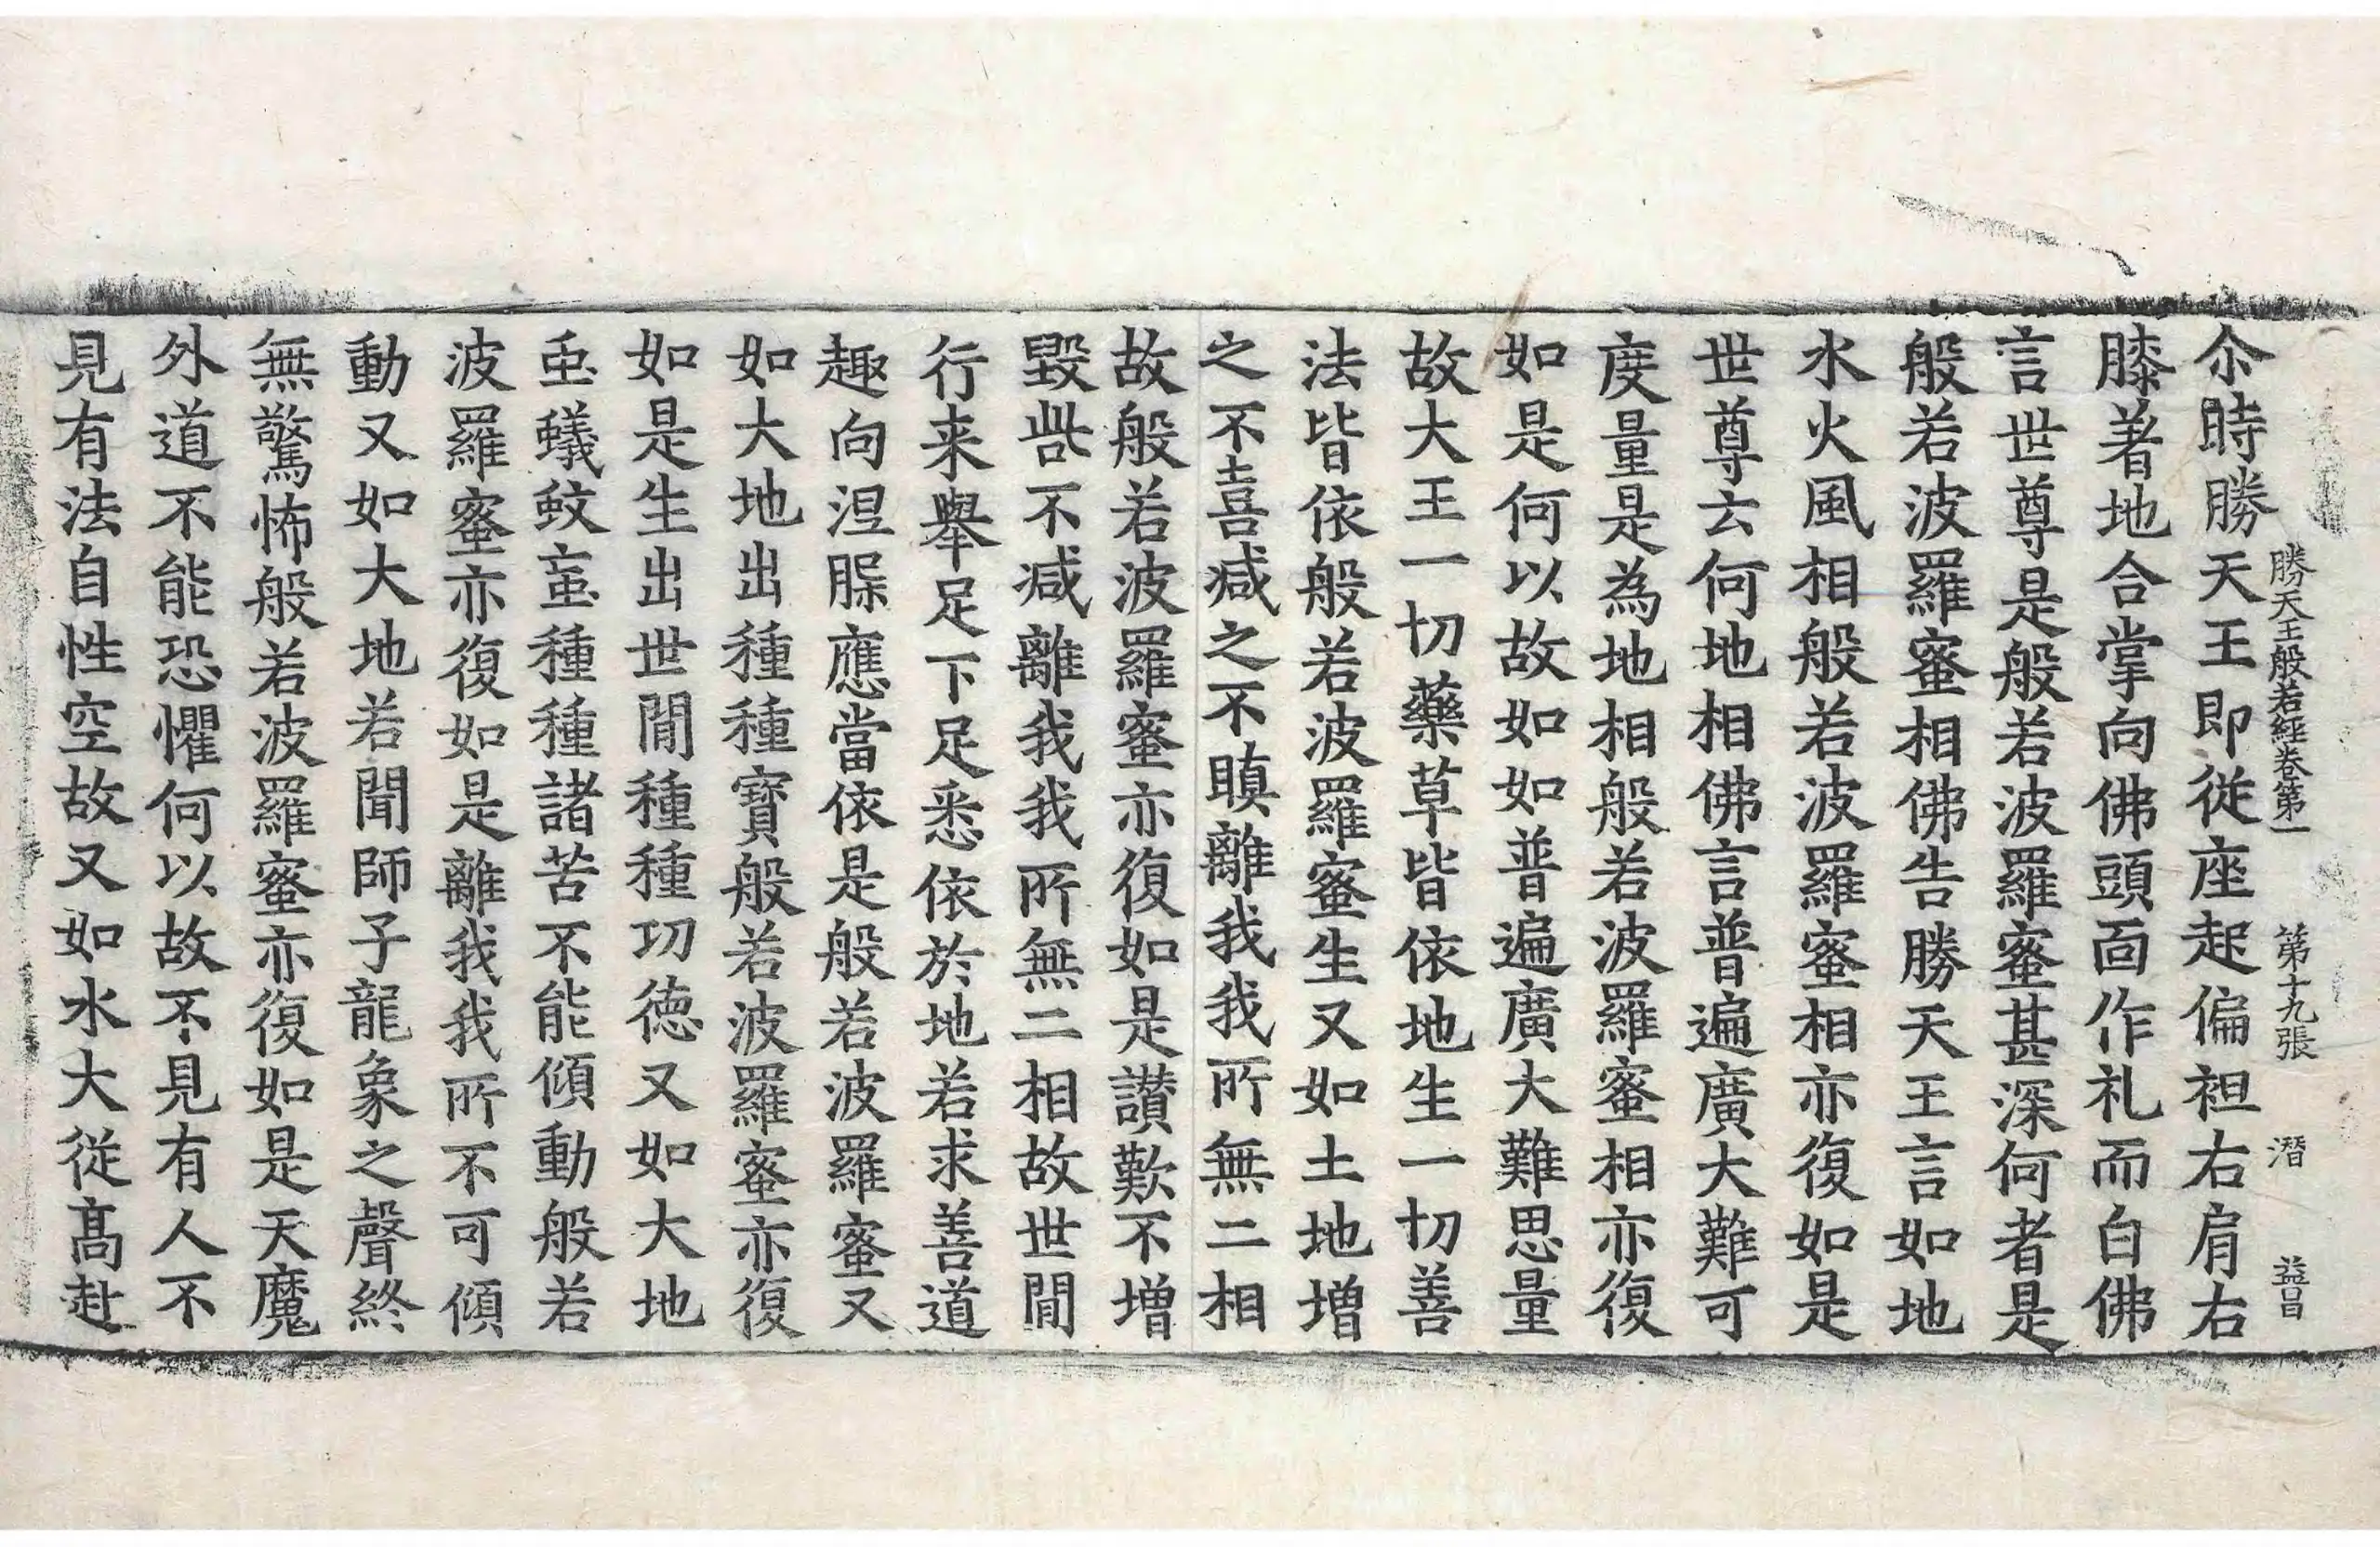 勝天王般若經卷第一 第十九張 潛 益昌
尒時勝天王即從座起偏袒右肩右
膝著地合掌向佛頭面作礼而白佛
言世尊是般若波羅蜜甚深何者是
般若波羅蜜相佛告勝天王言如地
水火風相般若波羅蜜相亦復如是
世尊云何地相佛言普遍廣大難可
度量是為地相般若波羅蜜相亦復
如是何以故如如普遍廣大難思量
故大王一切藥草皆依地生一切善
法皆依般若波羅蜜生又如土地增
之不喜減之不瞋離我我所無二相
故般若波羅蜜亦復如是讃歎不增
毀呰不減離我我所無二相故世間
行来舉足下足悉依於地若求善道
趣向涅槃應當依是般若波羅蜜又
如大地出種種寶般若波羅蜜亦復
如是生出世間種種功德又如大地
䖝蟻蚊䖟種種諸苦不能傾動般若
波羅蜜亦復如是離我我所不可傾
動又如大地若聞師子龍象之聲終
無驚怖般若波羅蜜亦復如是天魔
外道不能恐懼何以故不見有人不
見有法自性空故又如水大從髙赴